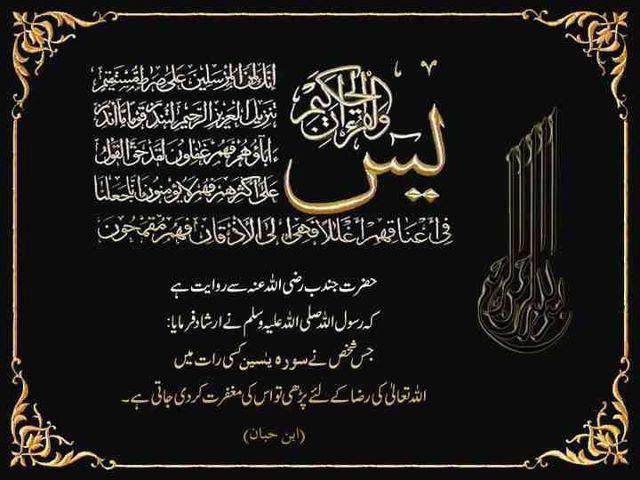 يس
والقرآن الحكيم
انك لمن المرسلين على صراط مستقيم
تنزيل العزيز الرحيم لتنذر قوما ما انذر
اباؤهم فهم غافلون لقد حق القول
على اكثرهم فهم لا يؤمنون انا جعلنا
في أعناقهم أغللا فهي إلى الأذقان فهم مقمحون
بسم الله الرحمن الرحيم
حضرت جندب رضی اللہ عنہ سے روایت ہے
کہ رسول اللہ صلی اللہ علیہ وسلم نے ارشاد فرمایا:
جس شخص نے سورہ یسین کسی رات میں
اللہ تعالیٰ کی رضا کے لئے پڑھی تو اس کی مغفرت کر دی جاتی ہے۔
(ابن حبان)